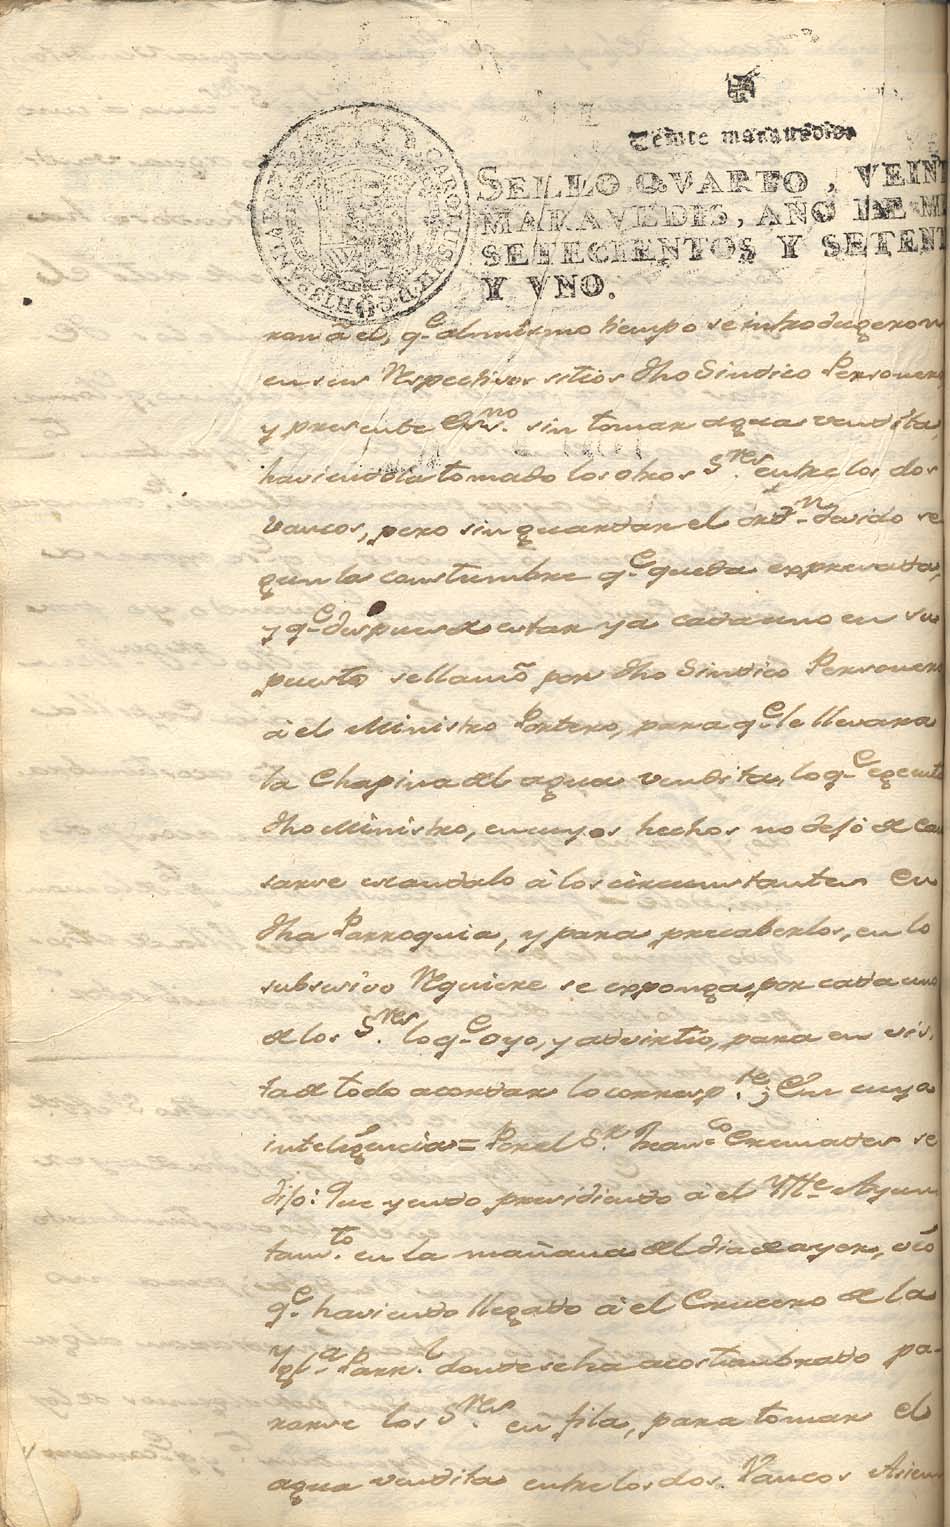 Veinte maravedis
SELLO QVARTO, VEIN
MARAVEDIS, AÑO DE M
SETECIENTOS Y SETENT
Y VNO.
ron â el, q.e al mismo tiempo se introdugeron
en sus Respectivos sitios dho Sindico Personero
y presente Ess.no sin tomar agua vendita,
haviendola tomado los otros S.res entre los dos
vancos, pero sin guardar el ord.n devido se
gun la constumbre q.e queda expresada,
y q.e despues de estar ya cada uno en su
puesto se llamô por dho Sindico Personero
â el Ministro Portero, para q.e le llevara
la Chapina del agua vendita, lo q.e egecutô
dho Ministro, en cuyos hechos no dejô de cau
sarse escandalo â los circunstantes en
dha Parroquia, y para precaberlos, en lo
subsesivo Requiere se exponga por cada uno
de los S.res lo q.e oyo, y advirtio, para en vis
ta de todo acordar lo corresp.te; En cuya
inteligencia = Por el S.r Fran.co Cremades se
dijo: Que yendo presidiendo â el Ytt.e Ayun
tam.to en la mañana del dia de ayer, viô
q.e haviendo llegado â el Crucero de la
Ygl.a Parr.l donde se ha acostumbrado pa-
rarse los S.res en fila, para tomar el
agua vendita entre los dos Vancos Asien